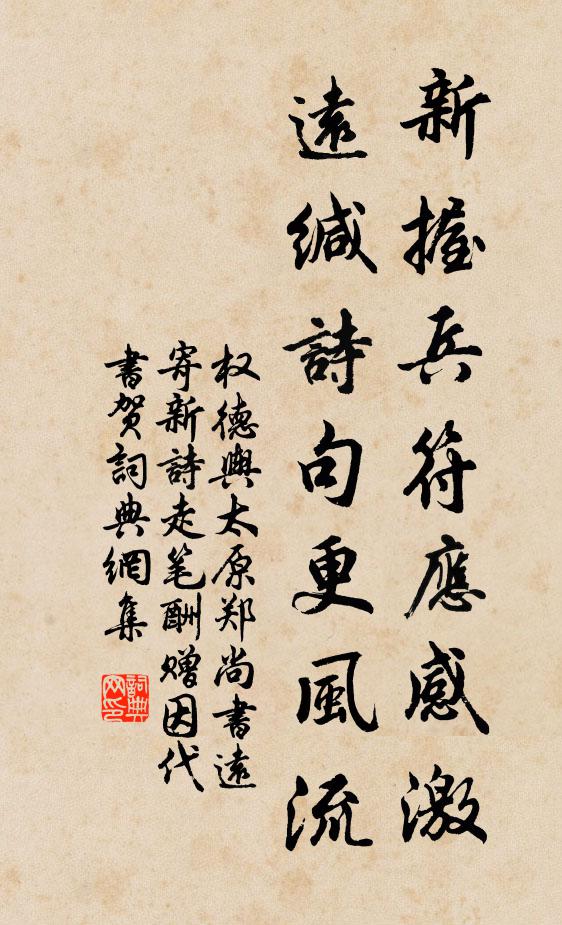 新握兵符應感激
遠緘詩句更風流
权德輿太原郑尚書遠
寄新詩走笔酬赠因代
書贺詞典網集
詞典
网印